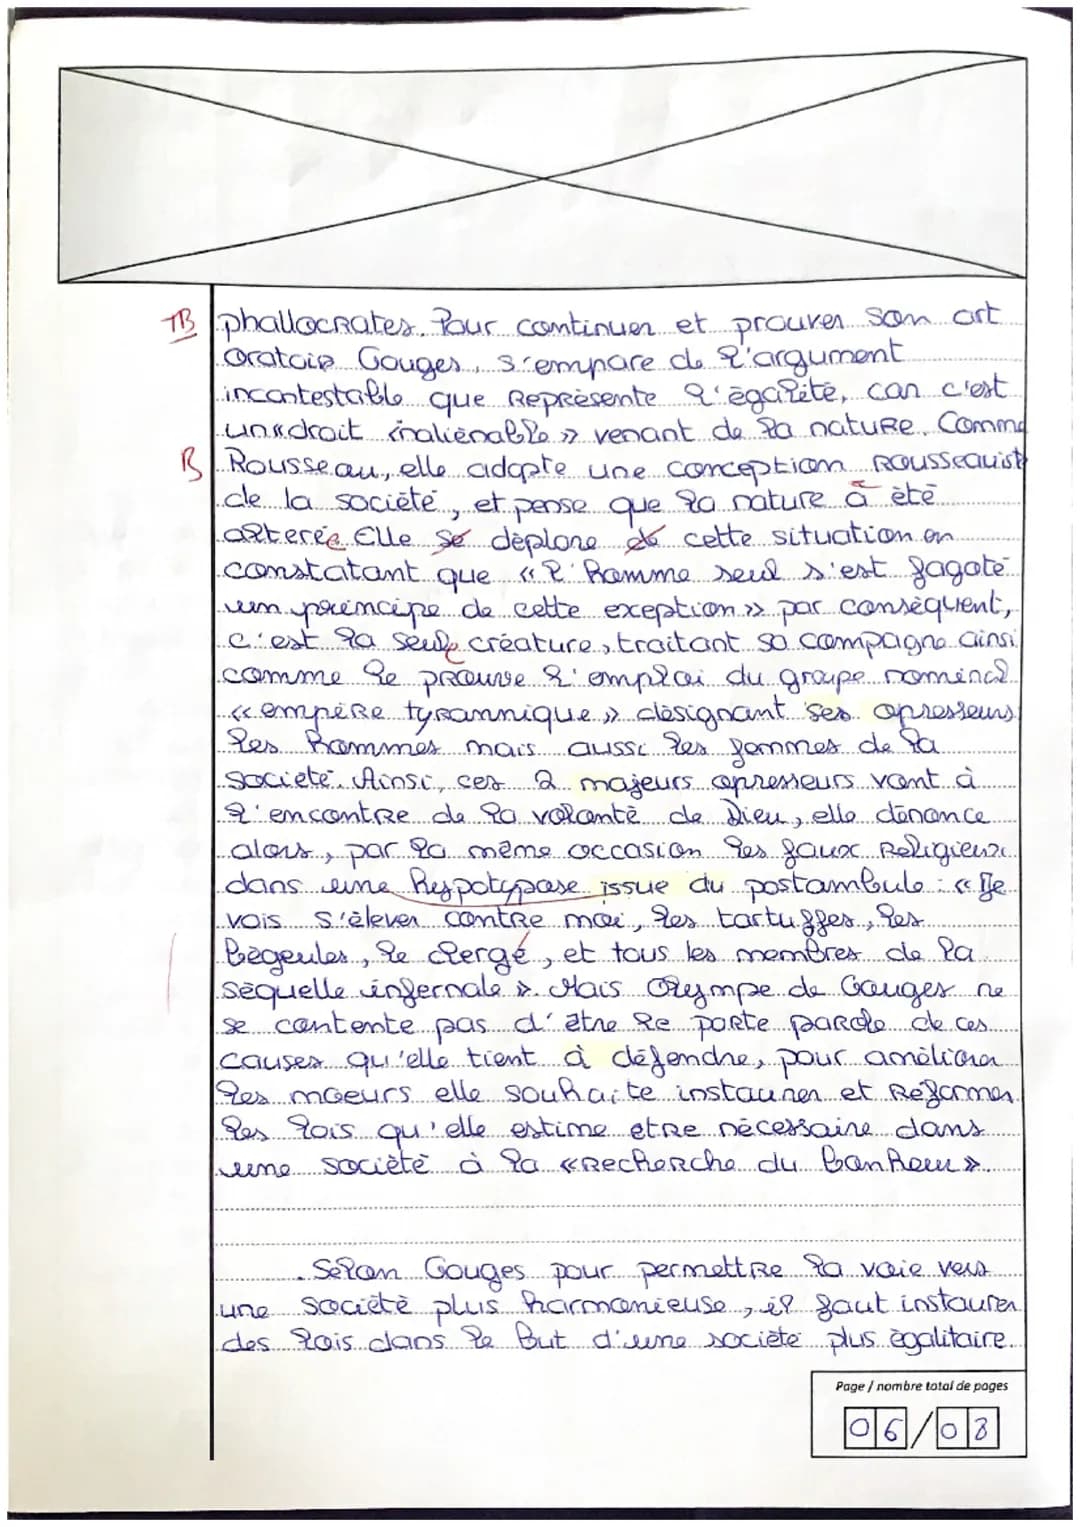 TB phallocrates. Pour continuer et prouver son art
oratoire Gouges, s'empare de l'argument
incontestable que représente l'égalité, car c'est
un « droit inaliénable » venant de la nature. Comme
B Rousseau, elle adopte une conception rousseauiste
de la société, et pense que la nature à été
alterée. Elle se déplore de cette situation en
constatant que « l'homme seul s'est fagoté
un principe de cette exception » par conséquent,
c'est la seule créature, traitant sa compagne ainsi
comme le prouve l'emploi du groupe nominal
« empire tyrannique » désignant ses opresseurs
les hommes mais aussi les femmes de la
société. Ainsi, ces 2 majeurs opresseurs vont à
l'encontre de la volonté de Dieu, elle dénonce
alors, par la même occasion les faux religieux
dans une hypotypose issue du postambule : « Je
vois s'élever contre moi, les tartuffes, les
bégeules, le clergé, et tous les membres de la
séquelle infernale ». Mais Olympe de Gouges ne
se contente pas d'être le porte parole de ces
causes qu'elle tient à défendre, pour améliorer
les mœurs elle souhaite instaurer et réformer
les lois qu'elle estime etre nécessaire dans
une société à la « recherche du bonheur ».
Selon Gouges pour permettre la voie vers
une société plus harmonieuse, il faut instaurer
des lois dans le but d'une société plus égalitaire.
Page / nombre total de pages
06/08